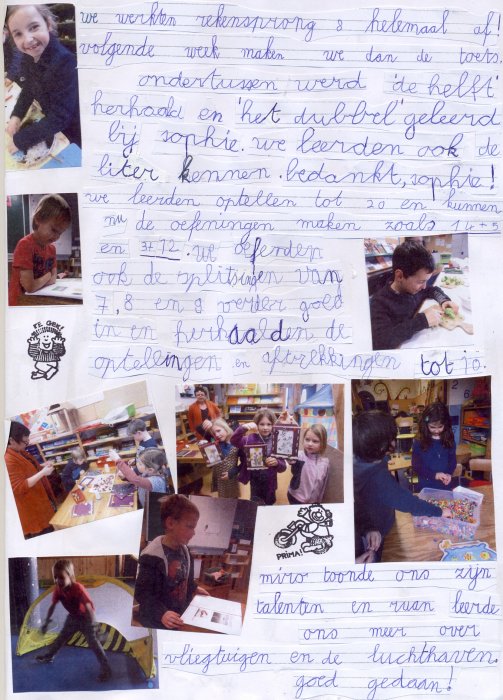 we werkten rekensprong 8 helemaal af!
volgende week maken we dan de toets.
ondertussen werd 'de helft'
herhaald en 'het dubbel' geleerd
bij sophie. we leerden ook de
liter kennen. bedankt, sophie!
we leerden optellen tot 20 en kunnen
nu de oefeningen maken zoals 14+5
en 3+12. we oefenden
ook de splitsingen van
7, 8 en 9 verder goed
in en herhaalden de
optellingen en aftrekkingen tot 10.
TE GEK!
PRIMA!
miro toonde ons zijn
talenten en ruan leerde
ons meer over
vliegtuigen en de luchthaven.
goed gedaan!